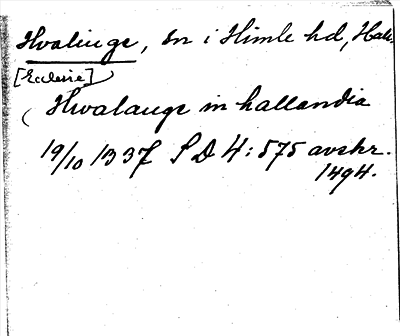 Hvalinge, sn i Himle hd, Hall.
[Ecclesie]
Hwalauge in hallandia
19/10 1337 SD 4:575 avskr.
1494.